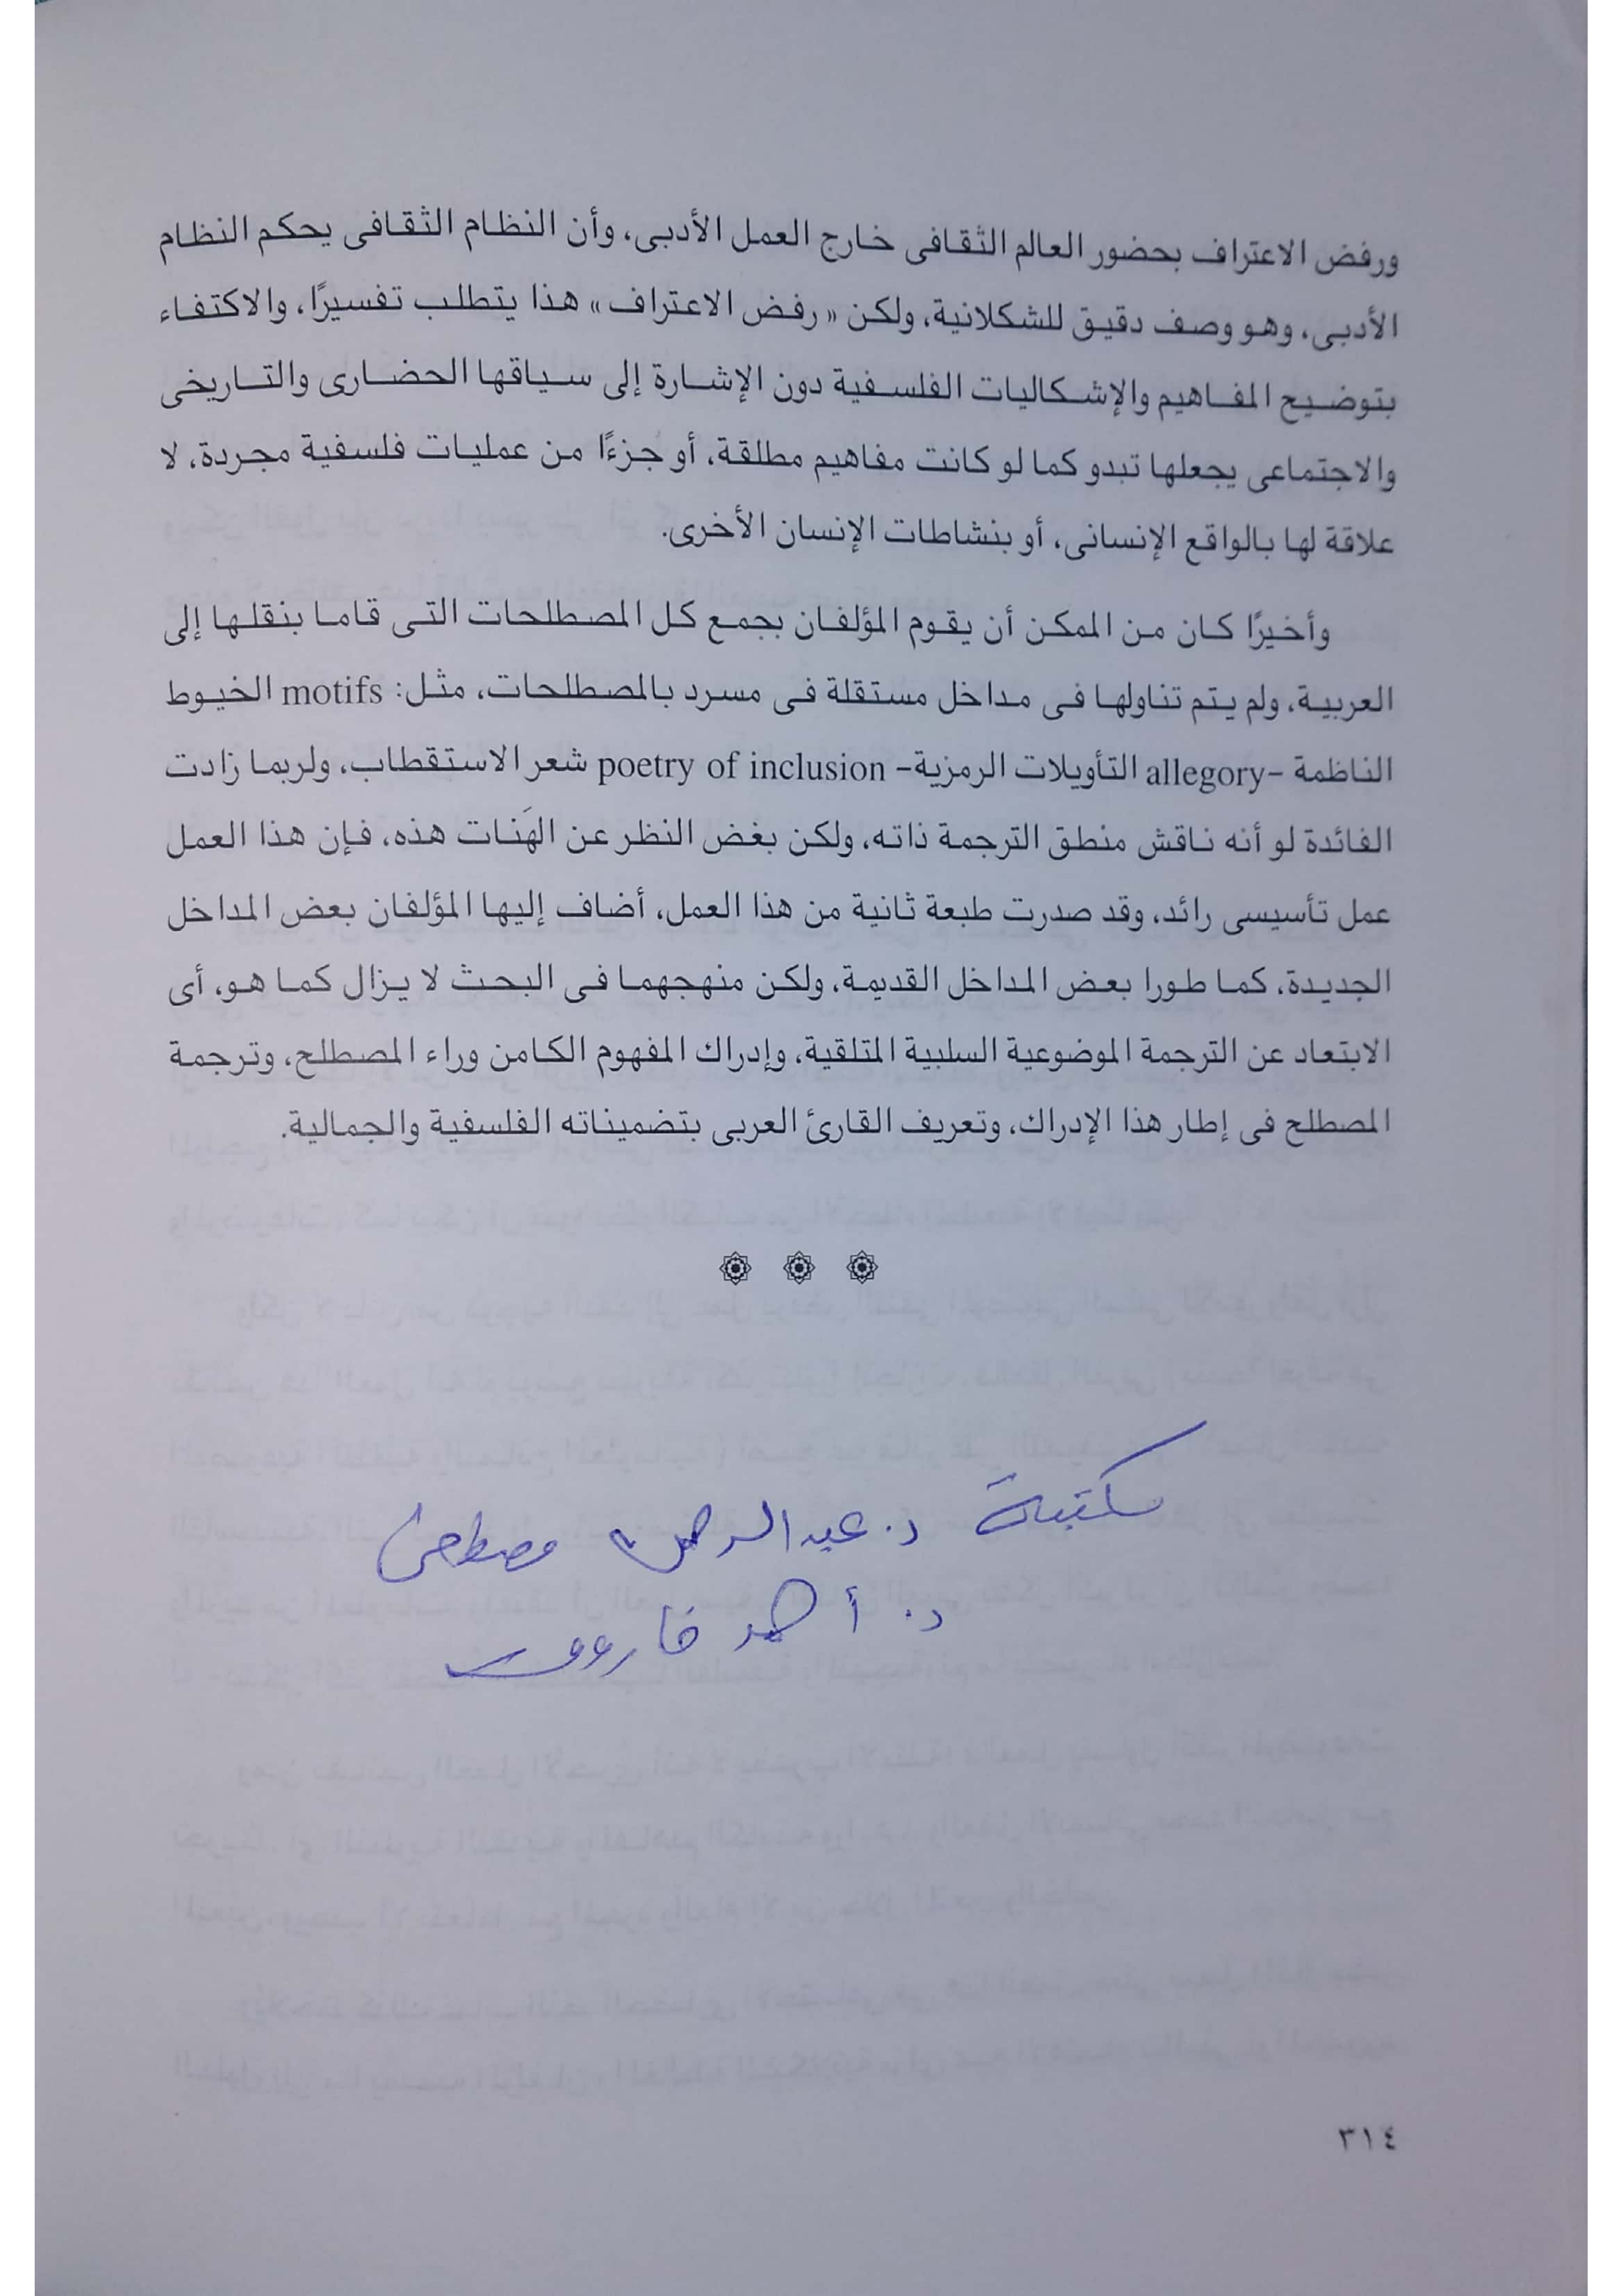 ورفض الاعتراف بحضور العالم الثقافى خارج العمل الأدبى، وأن النظام الثقافى يحكم النظام
الأدبى، وهو وصف دقيق للشكلانية، ولكن «رفض الاعتراف» هذا يتطلب تفسيرًا، والاكتفاء
بتوضيح المفاهيم والإشكاليات الفلسفية دون الإشارة إلى سياقها الحضارى والتاريخى
والاجتماعى يجعلها تبدو كما لو كانت مفاهيم مطلقة، أو جزءًا من عمليات فلسفية مجردة، لا
علاقة لها بالواقع الإنسانى، أو بنشاطات الإنسان الأخرى.
وأخيرًا كان من الممكن أن يقوم المؤلفان بجمع كل المصطلحات التى قاما بنقلها إلى
العربية، ولم يتم تناولها فى مداخل مستقلة فى مسرد بالمصطلحات، مثل: motifs الخيوط
الناظمة -allegory التأويلات الرمزية- poetry of inclusion شعر الاستقطاب، ولربما زادت
الفائدة لو أنه ناقش منطق الترجمة ذاته، ولكن بغض النظر عن الهَنات هذه، فإن هذا العمل
عمل تأسيسى رائد، وقد صدرت طبعة ثانية من هذا العمل، أضاف إليها المؤلفان بعض المداخل
الجديدة، كما طورا بعض المداخل القديمة، ولكن منهجهما فى البحث لا يزال كما هو، أى
الابتعاد عن الترجمة الموضوعية السلبية المتلقية، وإدراك المفهوم الكامن وراء المصطلح، وترجمة
المصطلح فى إطار هذا الإدراك، وتعريف القارئ العربى بتضميناته الفلسفية والجمالية.
مكتبة د. عبدالرحمن مصطفى
د. أحمد فاروق
٣١٤